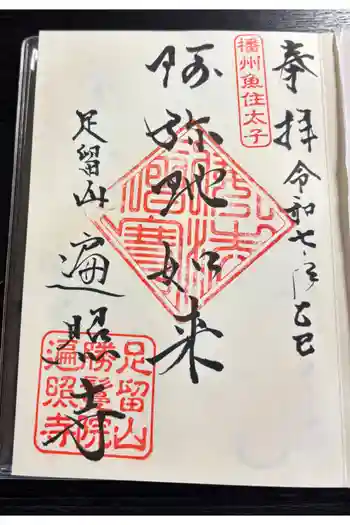 奉拝
令和七乙巳
播州魚住太子
阿弥陀如来
足留山
遍照寺
足留山
勝鬘院
遍照寺